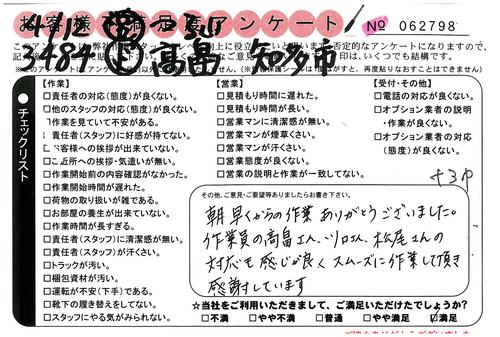 お客様の満足度アンケート
No 062798
3484 高畠 知多市
【作業】
□責任者の対応(態度)が良くない。
□他のスタッフの対応(態度)が良くない。
□作業を見ていて不安がある。
責任者(スタッフ)に好感が持てない。
お客様への挨拶が出来ていない。
□ご近所への挨拶・気遣いが無い。
□作業開始前の内容確認がなかった。
□作業開始時間が遅れた。
□荷物の取り扱いが雑である。
□お部屋の養生が出来ていない。
□作業時間が長すぎる。
□責任者(スタッフ)に清潔感が無い。
□責任者(スタッフ)が汗くさい。
□トラックが汚い。
□梱包資材が汚い。
□運転が不安(下手)である。
□靴下の履き替えをしてない。
□スタッフにやる気がみられない。
【営業】
□見積もり時間に遅れた。
□見積もり時間が長い。
□営業マンに清潔感が無い。
□営業マンが煙草くさい。
□営業マンが汗くさい。
□営業態度が良くない。
□営業の説明と作業が一致してない。
【受付・その他】
□電話の対応が良くない。
□オプション業者の説明
・作業が良くない。
□オプション業者の対応
(態度)が良くない。
チェックリスト
その他、ご意見・ご要望等ありましたらお書き下さい。
朝早くからの作業ありがとうございました。
作業員の高畠さん、川口さん、松尾さんの
対応も感じが良くスムーズに作業して頂き
感謝しています
☆当社をご利用いただきまして、ご満足いただけたでしょうか?
□不満 □やや不満 □普通 □やや満足 ☑満足